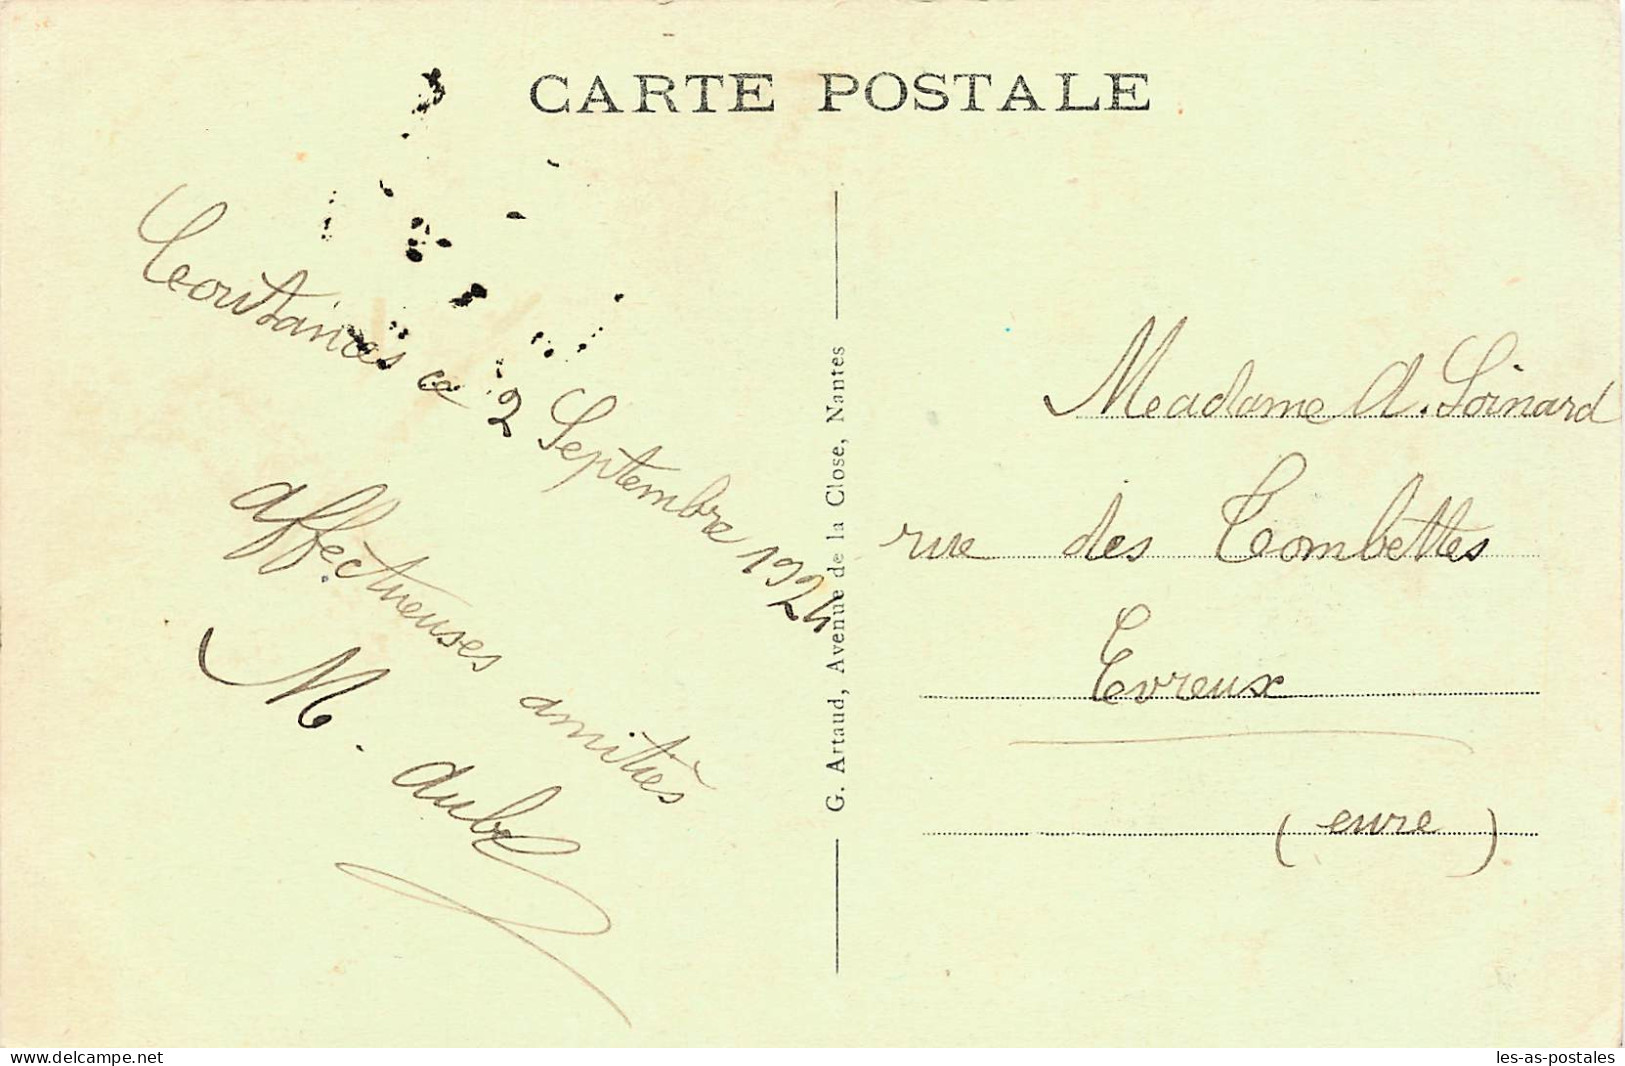 CARTE POSTALE
Coutances ce 2 Septembre 1924
affectueuses amitiés
M. Aubel
G. Artaud, Avenue de la Close, Nantes
Madame A. Loinard
rue des Combettes
Evreux
(eure)
www.delcampe.net
les-as-postales